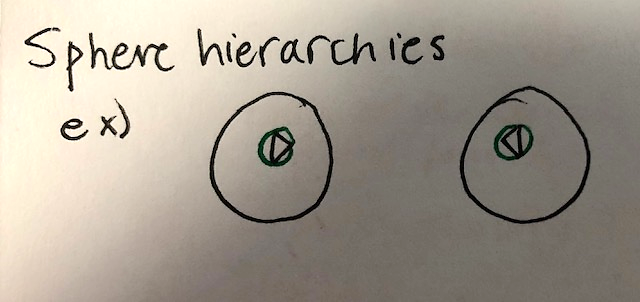 Sphere hierarchies
ex)